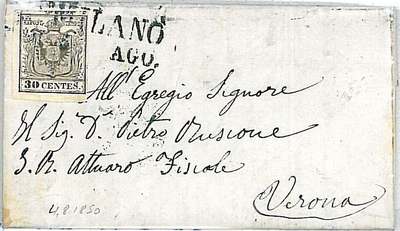 LANO
AGO.
30 CENTES.
All' Egregio Signore
Il Sig. Dr. Pietro
I. R. Attuaro Fiscale
Verona